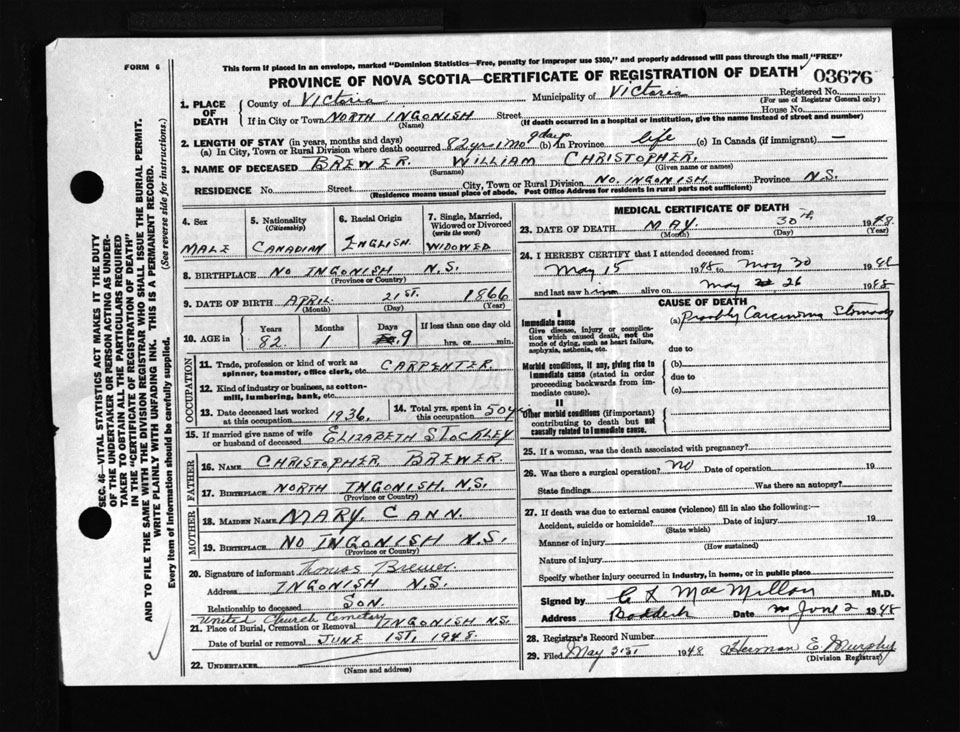 FORM 6
This form if placed in an envelope, marked "Dominion Statistics—Free, penalty for improper use $300," and properly addressed will pass through the mail "FREE"
PROVINCE OF NOVA SCOTIA—CERTIFICATE OF REGISTRATION OF DEATH 03676
1. PLACE OF DEATH
County of Victoria Municipality of Victoria Registered No.
(For use of Registrar General only)
If in City or Town NORTH INGONISH Street House No.
(Name) (If death occurred in a hospital or institution, give the name instead of street and number)
2. LENGTH OF STAY (in years, months and days)
(a) In City, Town or Rural Division where death occurred 82 yr 1 mo 9 days (b) In Province life (c) In Canada (if immigrant) —
3. NAME OF DECEASED BREWER. WILLIAM CHRISTOPHER.
(Surname) (Given name or names)
RESIDENCE No. Street City, Town or Rural Division NO. INGONISH. Province N.S.
(Residence means usual place of abode. Post Office Address for residents in rural parts not sufficient)
4. Sex
MALE
5. Nationality
(Citizenship)
CANADIAN
6. Racial Origin
ENGLISH.
7. Single, Married, Widowed or Divorced
(write the word)
WIDOWED
8. BIRTHPLACE NO INGONISH N.S.
(Province or Country)
9. DATE OF BIRTH APRIL 21ST. 1866
(Month) (Day) (Year)
10. AGE in
Years Months Days If less than one day old
82. 1 9 hrs. or min.
OCCUPATION
11. Trade, profession or kind of work as spinner, teamster, office clerk, etc. CARPENTER.
12. Kind of industry or business, as cotton-mill, lumbering, bank, etc.
13. Date deceased last worked at this occupation 1936. 14. Total yrs. spent in this occupation 50 yr
15. If married give name of wife or husband of deceased ELIZABETH STOCKLEY
FATHER
16. NAME CHRISTOPHER BREWER.
17. BIRTHPLACE NORTH INGONISH, N.S.
(Province or Country)
MOTHER
18. MAIDEN NAME MARY. CANN.
19. BIRTHPLACE NO INGONISH N.S.
(Province or Country)
20. Signature of informant Thomas Brewer.
Address INGONISH N.S.
Relationship to deceased SON.
United Church Cemetery
21. Place of Burial, Cremation or Removal INGONISH N.S.
Date of burial or removal JUNE 1ST, 1948.
22. UNDERTAKER
(Name and address)
MEDICAL CERTIFICATE OF DEATH
23. DATE OF DEATH MAY 30th 1948
(Month) (Day) (Year)
24. I HEREBY CERTIFY that I attended deceased from:
May 15 1948 to May 30 1948
and last saw him alive on May 26 1948
CAUSE OF DEATH
I
Immediate cause
Give disease, injury or complication which caused death, not the mode of dying, such as heart failure, asphyxia, asthenia, etc.
(a) Probably Carcinoma Stomach
due to
Morbid conditions, if any, giving rise to immediate cause (stated in order proceeding backwards from immediate cause).
(b)
due to
(c)
II
Other morbid conditions (if important) contributing to death but not causally related to immediate cause.
25. If a woman, was the death associated with pregnancy?
26. Was there a surgical operation? no Date of operation 19
State findings Was there an autopsy?
27. If death was due to external causes (violence) fill in also the following:—
Accident, suicide or homicide? Date of injury 19
(State which)
Manner of injury
(How sustained)
Nature of injury
Specify whether injury occurred in industry, in home, or in public place
Signed by C L MacMillan M.D.
Baddeck Date June 2 1948
28. Registrar's Record Number
29. Filed May 31st 1948 Herman E. Murphy
(Division Registrar)
SEC. 46—VITAL STATISTICS ACT MAKES IT THE DUTY
OF THE UNDERTAKER OR PERSON ACTING AS UNDER-
TAKER TO OBTAIN ALL THE PARTICULARS REQUIRED
IN THE "CERTIFICATE OF REGISTRATION OF DEATH"
AND TO FILE THE SAME WITH THE DIVISION REGISTRAR WHO SHALL ISSUE THE BURIAL PERMIT.
WRITE PLAINLY WITH UNFADING INK. THIS IS A PERMANENT RECORD.
Every item of information should be carefully supplied. (See reverse side for instructions.)